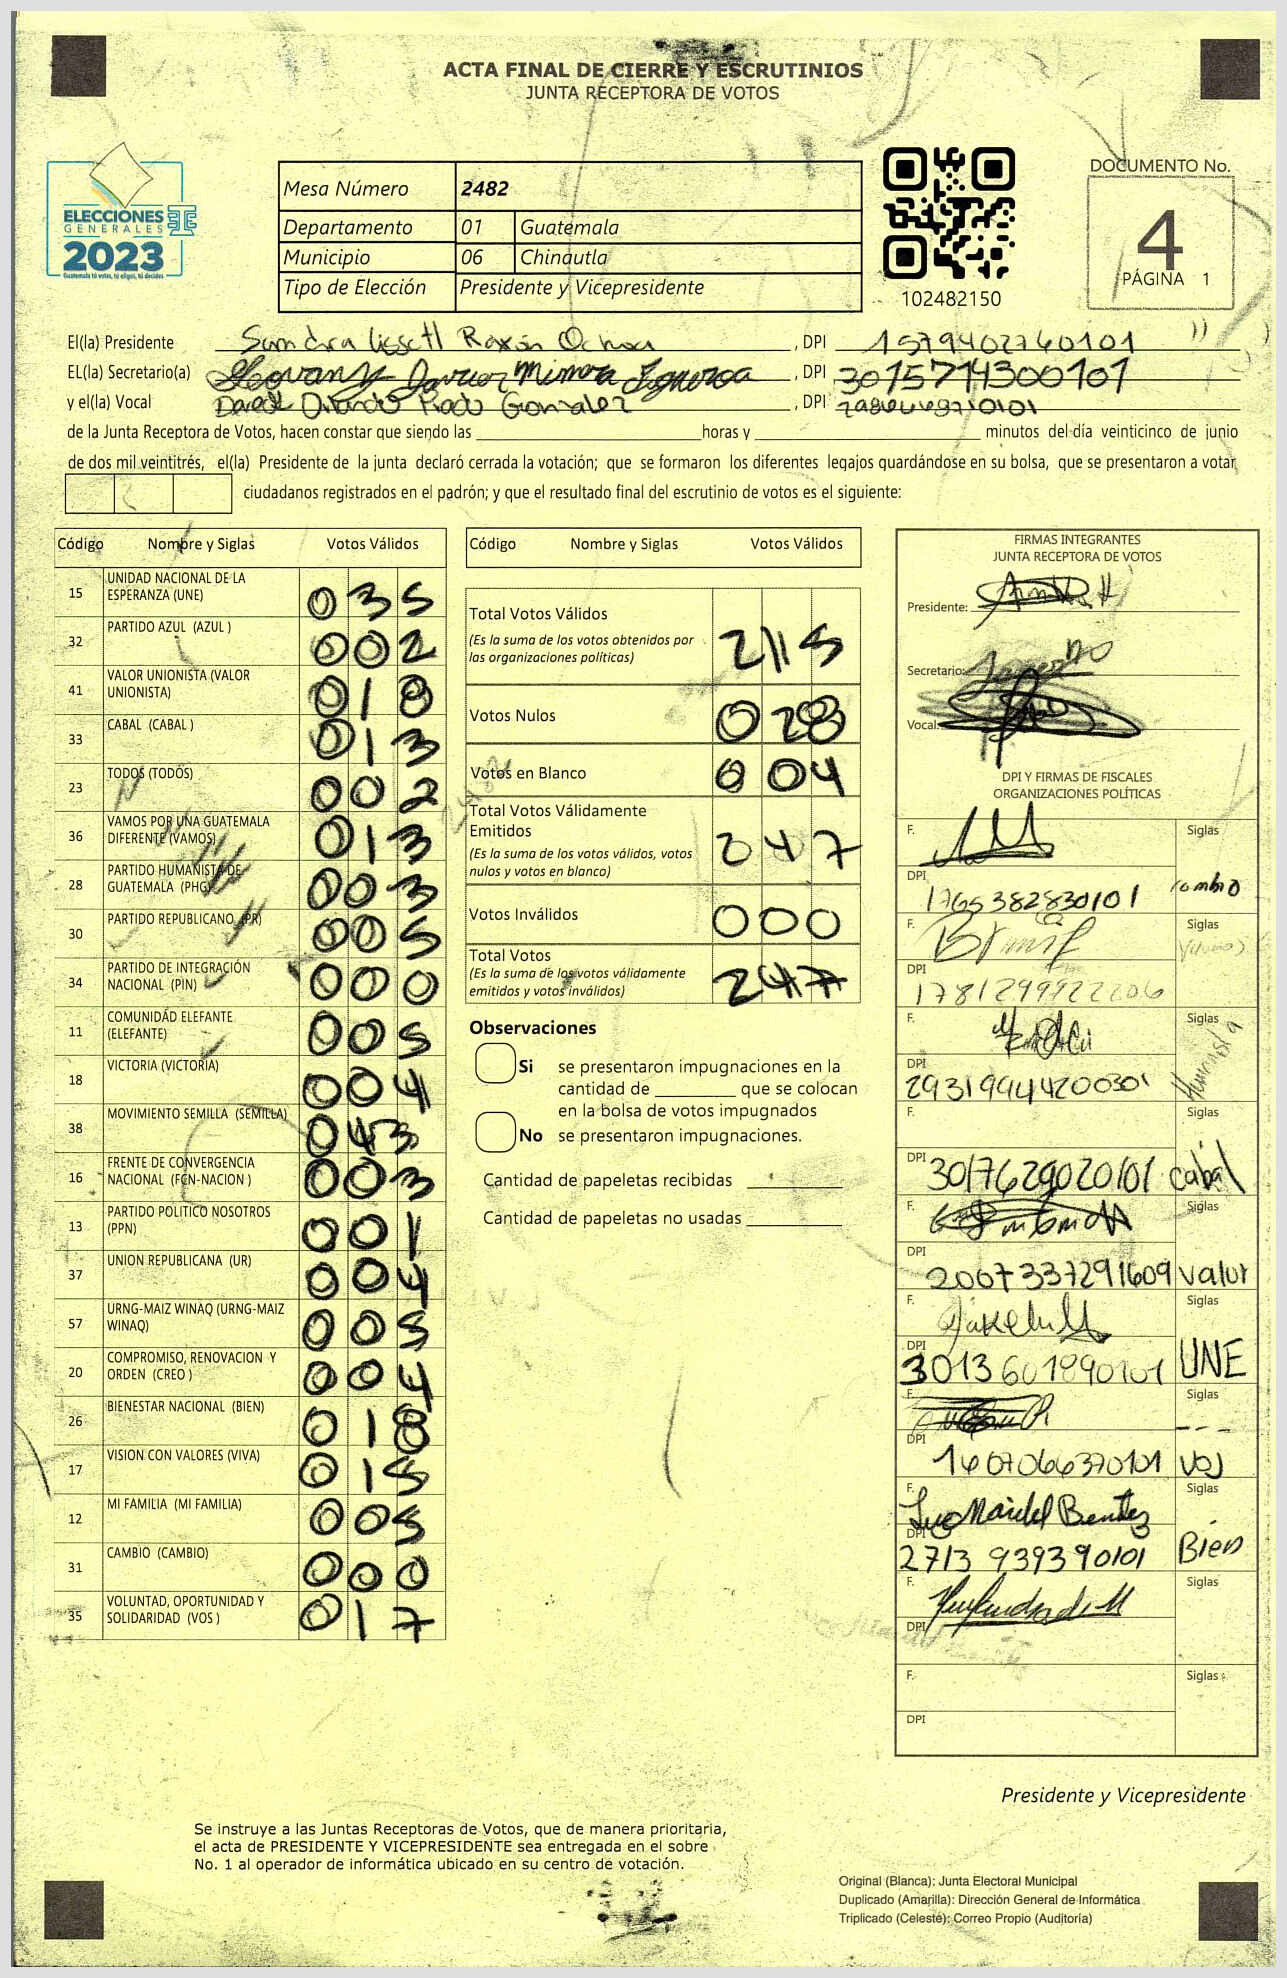 ACTA FINAL DE CIERRE Y ESCRUTINIOS
JUNTA RECEPTORA DE VOTOS
ELECCIONES
GENERALES
2023
Guatemala tú votas, tú eliges, tú decides
Mesa Número 2482
Departamento 01 Guatemala
Municipio 06 Chinautla
Tipo de Elección Presidente y Vicepresidente
102482150
DOCUMENTO No.
4
PÁGINA 1
El(la) Presidente Sandra Lissett Ochoa , DPI 1579402760101
EL(la) Secretario(a) Geovany Javier Figueroa , DPI 3015714300101
y el(la) Vocal Orlando Prado Gonzalez , DPI
de la Junta Receptora de Votos, hacen constar que siendo las horas y minutos del día veinticinco de junio
de dos mil veintitrés, el(la) Presidente de la junta declaró cerrada la votación; que se formaron los diferentes legajos quardándose en su bolsa, que se presentaron a votar
ciudadanos registrados en el padrón; y que el resultado final del escrutinio de votos es el siguiente:
Código Nombre y Siglas Votos Válidos
15 UNIDAD NACIONAL DE LA ESPERANZA (UNE) 035
32 PARTIDO AZUL (AZUL ) 002
41 VALOR UNIONISTA (VALOR UNIONISTA) 018
33 CABAL (CABAL ) 013
23 TODOS (TODOS) 002
36 VAMOS POR UNA GUATEMALA DIFERENTE (VAMOS) 013
28 PARTIDO HUMANISTA DE GUATEMALA (PHG) 003
30 PARTIDO REPUBLICANO (PR) 005
34 PARTIDO DE INTEGRACIÓN NACIONAL (PIN) 000
11 COMUNIDAD ELEFANTE (ELEFANTE) 005
18 VICTORIA (VICTORIA) 004
38 MOVIMIENTO SEMILLA (SEMILLA) 043
16 FRENTE DE CONVERGENCIA NACIONAL (FCN-NACION ) 003
13 PARTIDO POLITICO NOSOTROS (PPN) 001
37 UNION REPUBLICANA (UR) 004
57 URNG-MAIZ WINAQ (URNG-MAIZ WINAQ) 005
20 COMPROMISO, RENOVACION Y ORDEN (CREO ) 004
26 BIENESTAR NACIONAL (BIEN) 018
17 VISION CON VALORES (VIVA) 015
12 MI FAMILIA (MI FAMILIA) 005
31 CAMBIO (CAMBIO) 000
35 VOLUNTAD, OPORTUNIDAD Y SOLIDARIDAD (VOS ) 017
Código Nombre y Siglas Votos Válidos
Total Votos Válidos 215
(Es la suma de los votos obtenidos por
las organizaciones políticas)
Votos Nulos 028
Votos en Blanco 004
Total Votos Válidamente
Emitidos 247
(Es la suma de los votos válidos, votos
nulos y votos en blanco)
Votos Inválidos 000
Total Votos 247
(Es la suma de los votos válidamente
emitidos y votos inválidos)
Observaciones
Si se presentaron impugnaciones en la
cantidad de que se colocan
en la bolsa de votos impugnados
No se presentaron impugnaciones.
Cantidad de papeletas recibidas
Cantidad de papeletas no usadas
FIRMAS INTEGRANTES
JUNTA RECEPTORA DE VOTOS
Presidente:
Secretario:
Vocal:
DPI Y FIRMAS DE FISCALES
ORGANIZACIONES POLÍTICAS
F. Siglas
DPI 1765382830101 cambio
F. Siglas
DPI 1781299922206
F. Siglas
DPI 29319944200301 Humanista
F. Siglas
DPI 3017629020101 cabal
F. Siglas
DPI 2007337291609 valor
F. Siglas
DPI 3013601890101 UNE
F. Siglas
DPI 1607066370101 VOS
F. Luz Maribel Benitez Siglas
DPI 2713939390101 Bien
F. Siglas
DPI
F. Siglas
DPI
Presidente y Vicepresidente
Se instruye a las Juntas Receptoras de Votos, que de manera prioritaria,
el acta de PRESIDENTE Y VICEPRESIDENTE sea entregada en el sobre
No. 1 al operador de informática ubicado en su centro de votación.
Original (Blanca): Junta Electoral Municipal
Duplicado (Amarilla): Dirección General de Informática
Triplicado (Celeste): Correo Propio (Auditoría)